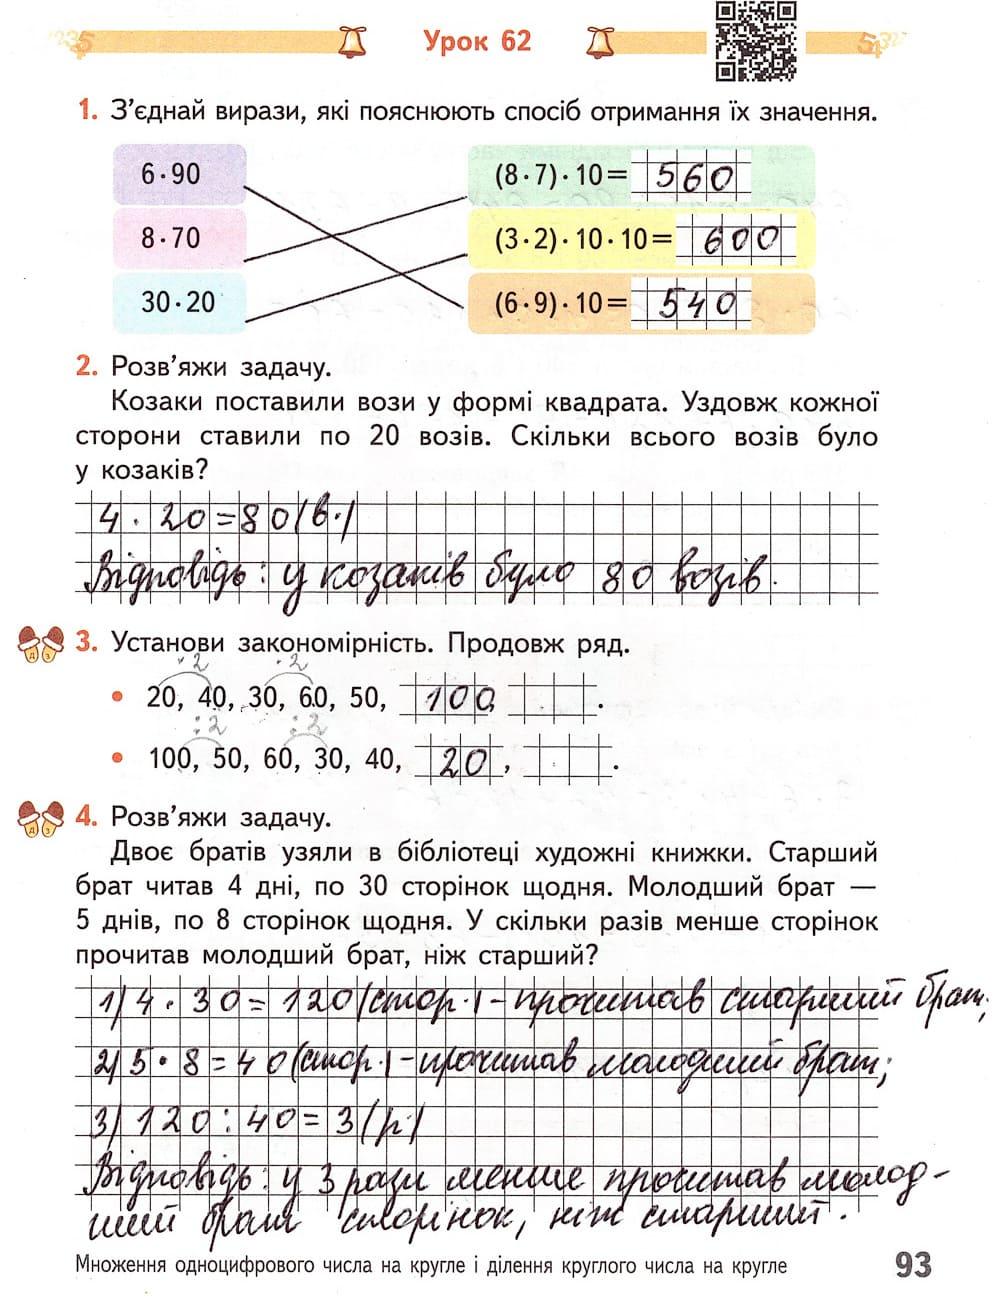 Урок 62
1. З’єднай вирази, які пояснюють спосіб отримання їх значення.
6·90 (8·7)·10= 560
8·70 (3·2)·10·10= 600
30·20 (6·9)·10= 540
2. Розв’яжи задачу.
Козаки поставили вози у формі квадрата. Уздовж кожної
сторони ставили по 20 возів. Скільки всього возів було
у козаків?
4 · 20 = 80 (в.)
Відповідь: у козаків було 80 возів.
3. Установи закономірність. Продовж ряд.
·2 ·2
• 20, 40, 30, 60, 50, 100, .
:2 :2
• 100, 50, 60, 30, 40, 20, .
4. Розв’яжи задачу.
Двоє братів узяли в бібліотеці художні книжки. Старший
брат читав 4 дні, по 30 сторінок щодня. Молодший брат —
5 днів, по 8 сторінок щодня. У скільки разів менше сторінок
прочитав молодший брат, ніж старший?
1) 4 · 30 = 120 (стор.) – прочитав старший брат;
2) 5 · 8 = 40 (стор.) – прочитав молодший брат;
3) 120 : 40 = 3 (р.)
Відповідь: у 3 рази менше прочитав молод-
ший брат сторінок, ніж старший.
Множення одноцифрового числа на кругле і ділення круглого числа на кругле 93